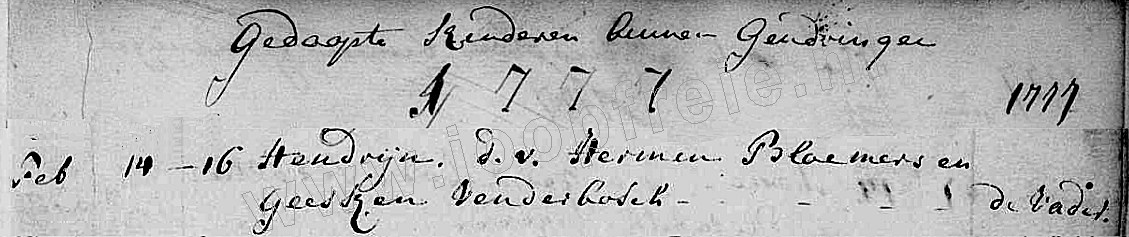 Gedoopte Kinderen binnen Gendringen
1777 1777
Feb 14 - 16 Hendrijn. d. v. Hermen Bloemers en
Geesken Venderbosch - - - - de Vader.